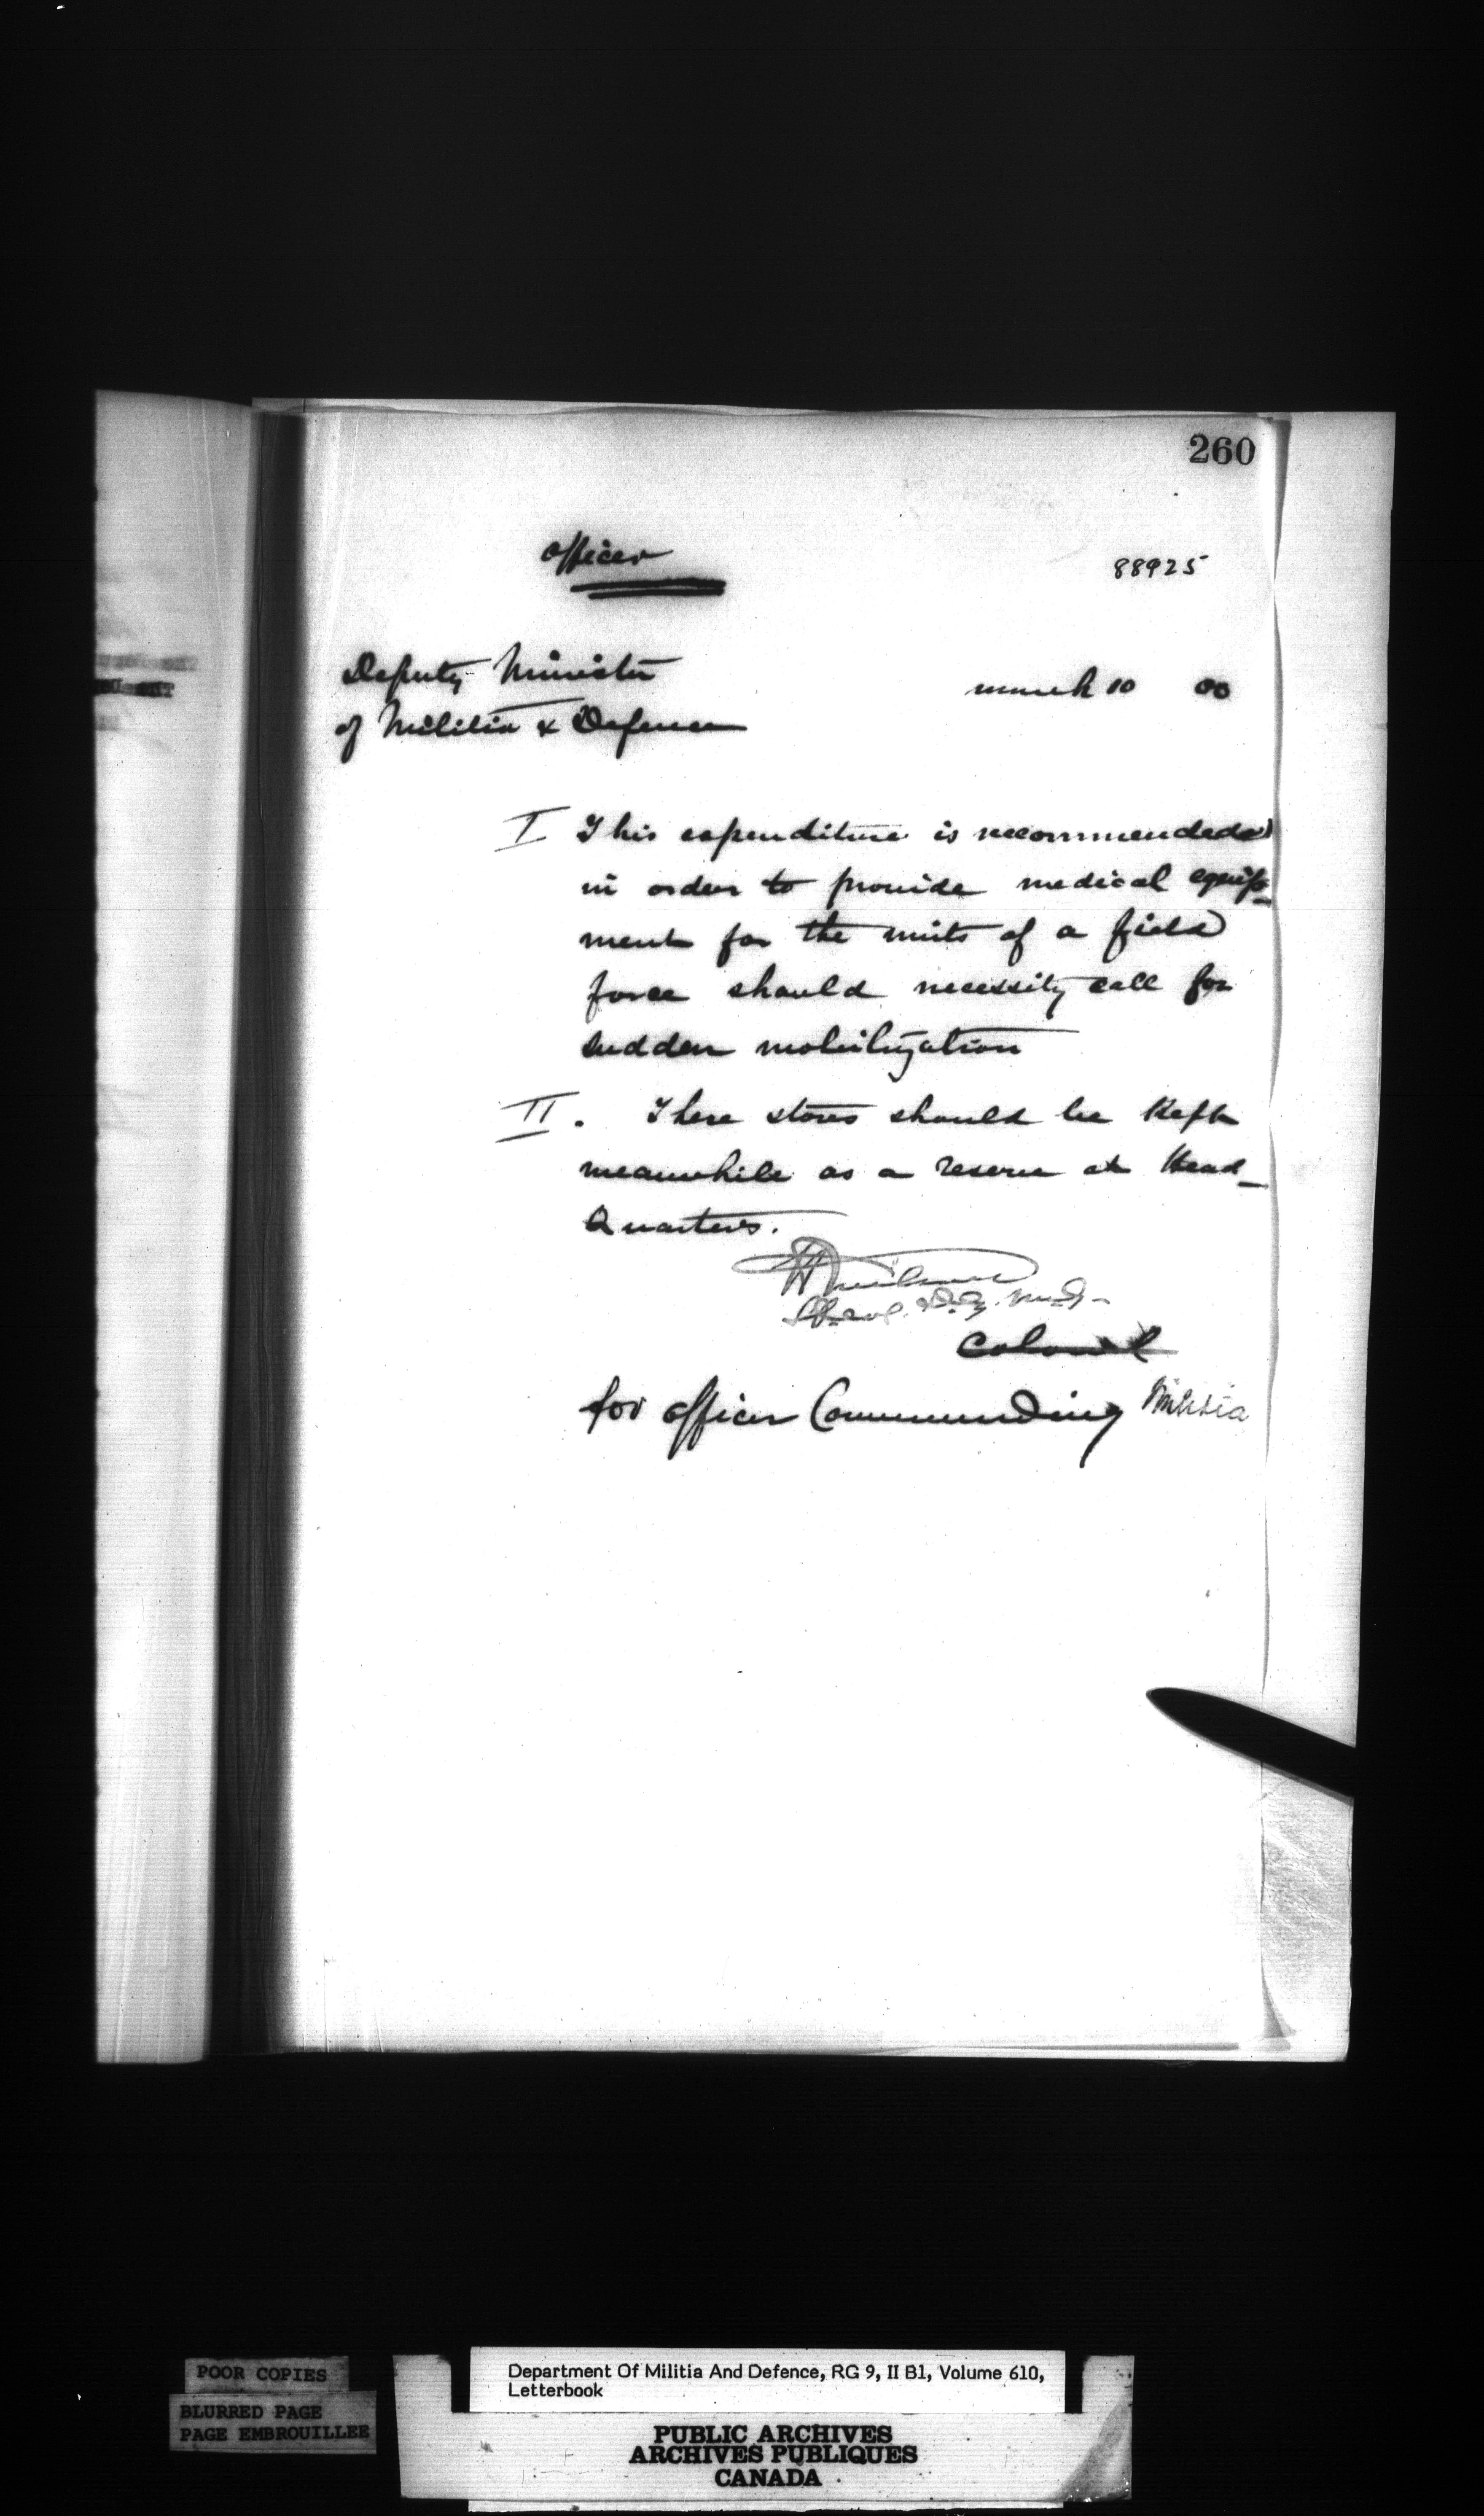 260
Officer
88925
Deputy Minister
March 10 00
of Militia & Defence
I This expenditure is recommended
in order to provide medical equip-
ment for the units of a field
force should necessity call for
sudden mobilization
II. These stores should be kept
meanwhile as a reserve at Head-
Quarters.
Colonel
for Officer Commanding Militia
POOR COPIES
BLURRED PAGE
PAGE EMBROUILLEE
Department Of Militia And Defence, RG 9, II B1, Volume 610,
Letterbook
PUBLIC ARCHIVES
ARCHIVES PUBLIQUES
CANADA